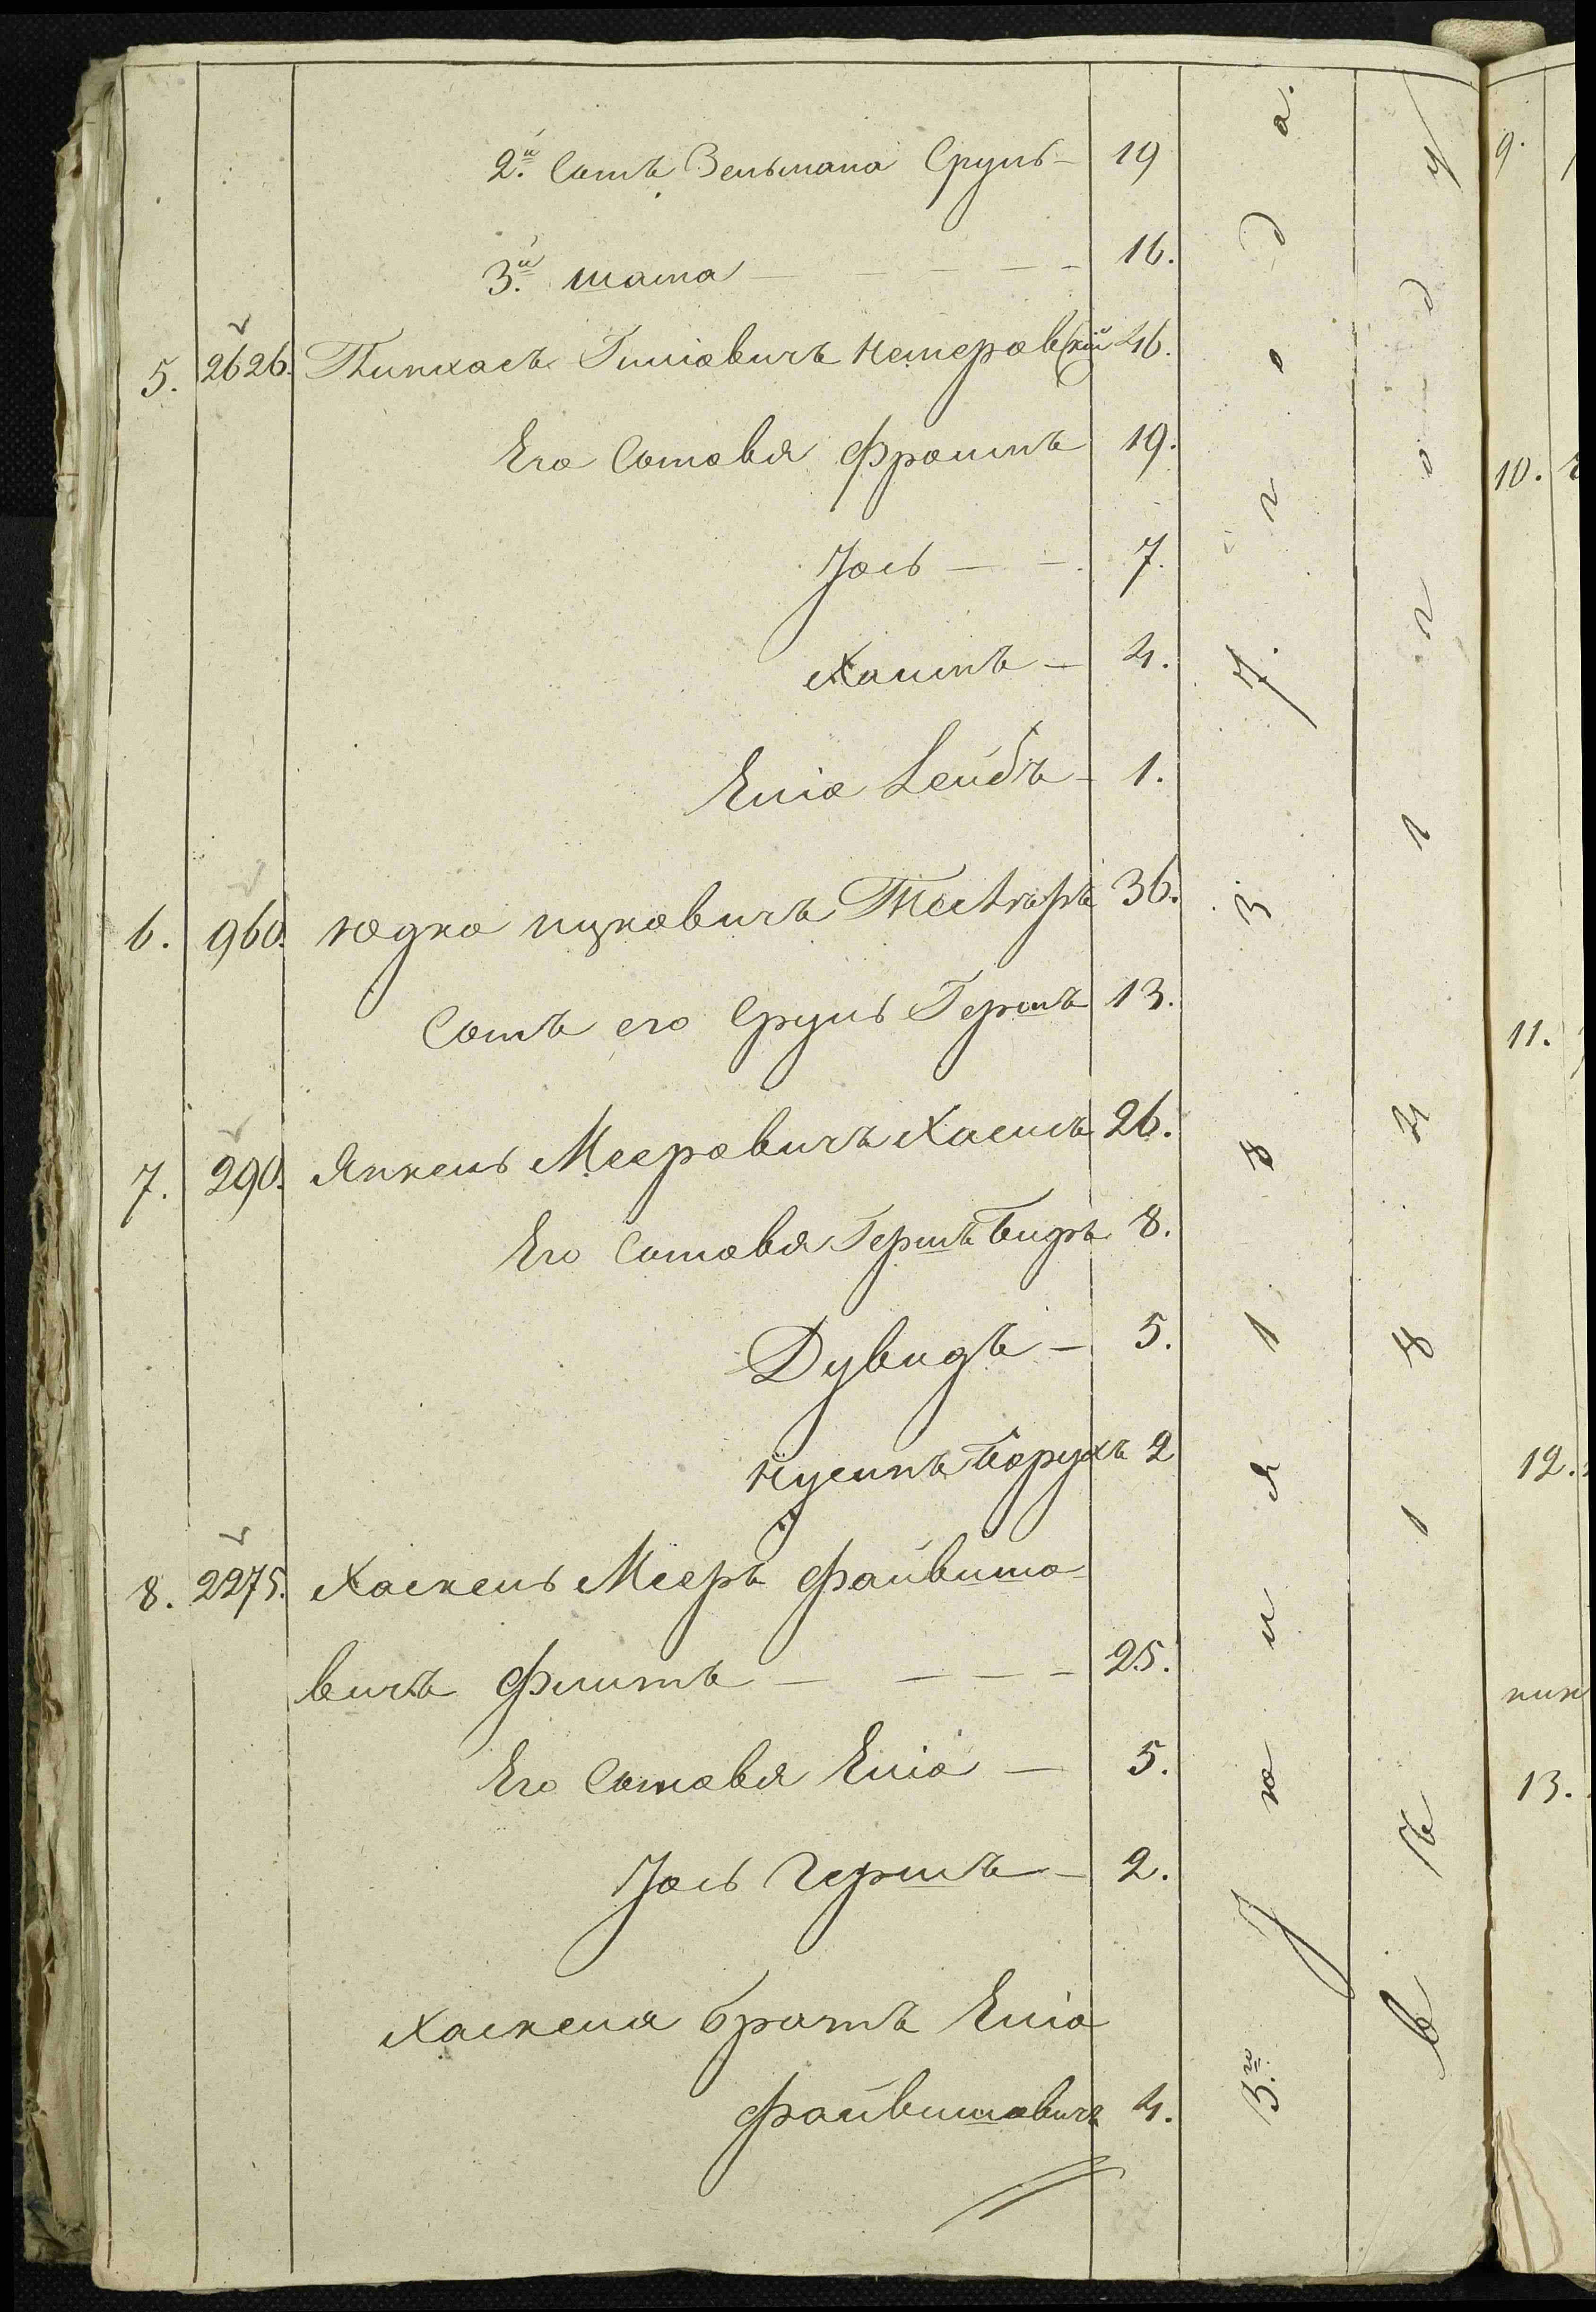 2й. Сынъ Зельмана Сруль — 19
3й. шата — — — — 16.
5. 2626. Пинхасъ Гилiовичъ Немеровскiй 46.
Его Сыновья Фроимъ 19.
Iось — — 7.
Хаимъ — 4.
Елiо Лейбъ — 1.
6. 960. Юдко ицковичъ 36.
Сынъ его Сруль Гершъ 13.
7. 290. Янкель Мееровичъ Хасисъ 26.
Его Сыновья Гершъ Биръ 8.
Дувидъ — 5.
Нусинъ Борухъ 2
8. 2275. Хаскель Мееръ Файвишо-
вичъ — — — — 25.
Его Сыновья Елiо — 5.
Iось Гершъ — 2.
Хаскеля братъ Елiо
Файвишовичъ 4.
3го. Iюния 1837. года.
въ 1841 году
9.
10.
11.
12.
13.